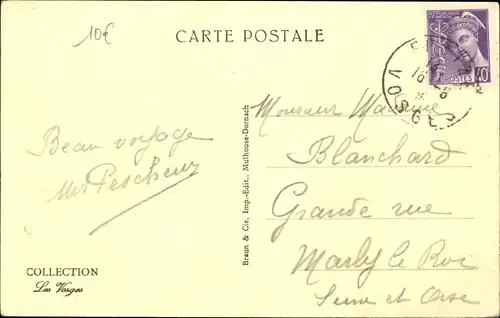 10€
CARTE POSTALE
POSTES
40
VOSGES
Beau voyage
Pescheux
COLLECTION
Les Vosges
Braun & Cie, Imp.-Edit., Mulhouse-Dornach
Monsieur Maxime
Blanchard
Grande rue
Marly le Roi
Seine et Oise